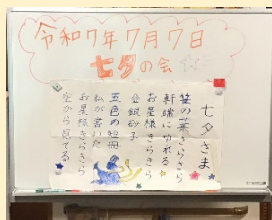 令和7年7月7日
七夕の会
七夕さま
笹の葉さらさら
軒端にゆれる
お星様きらきら
金銀砂子
五色の短冊
私が書いた
お星様きらきら
空から見てる